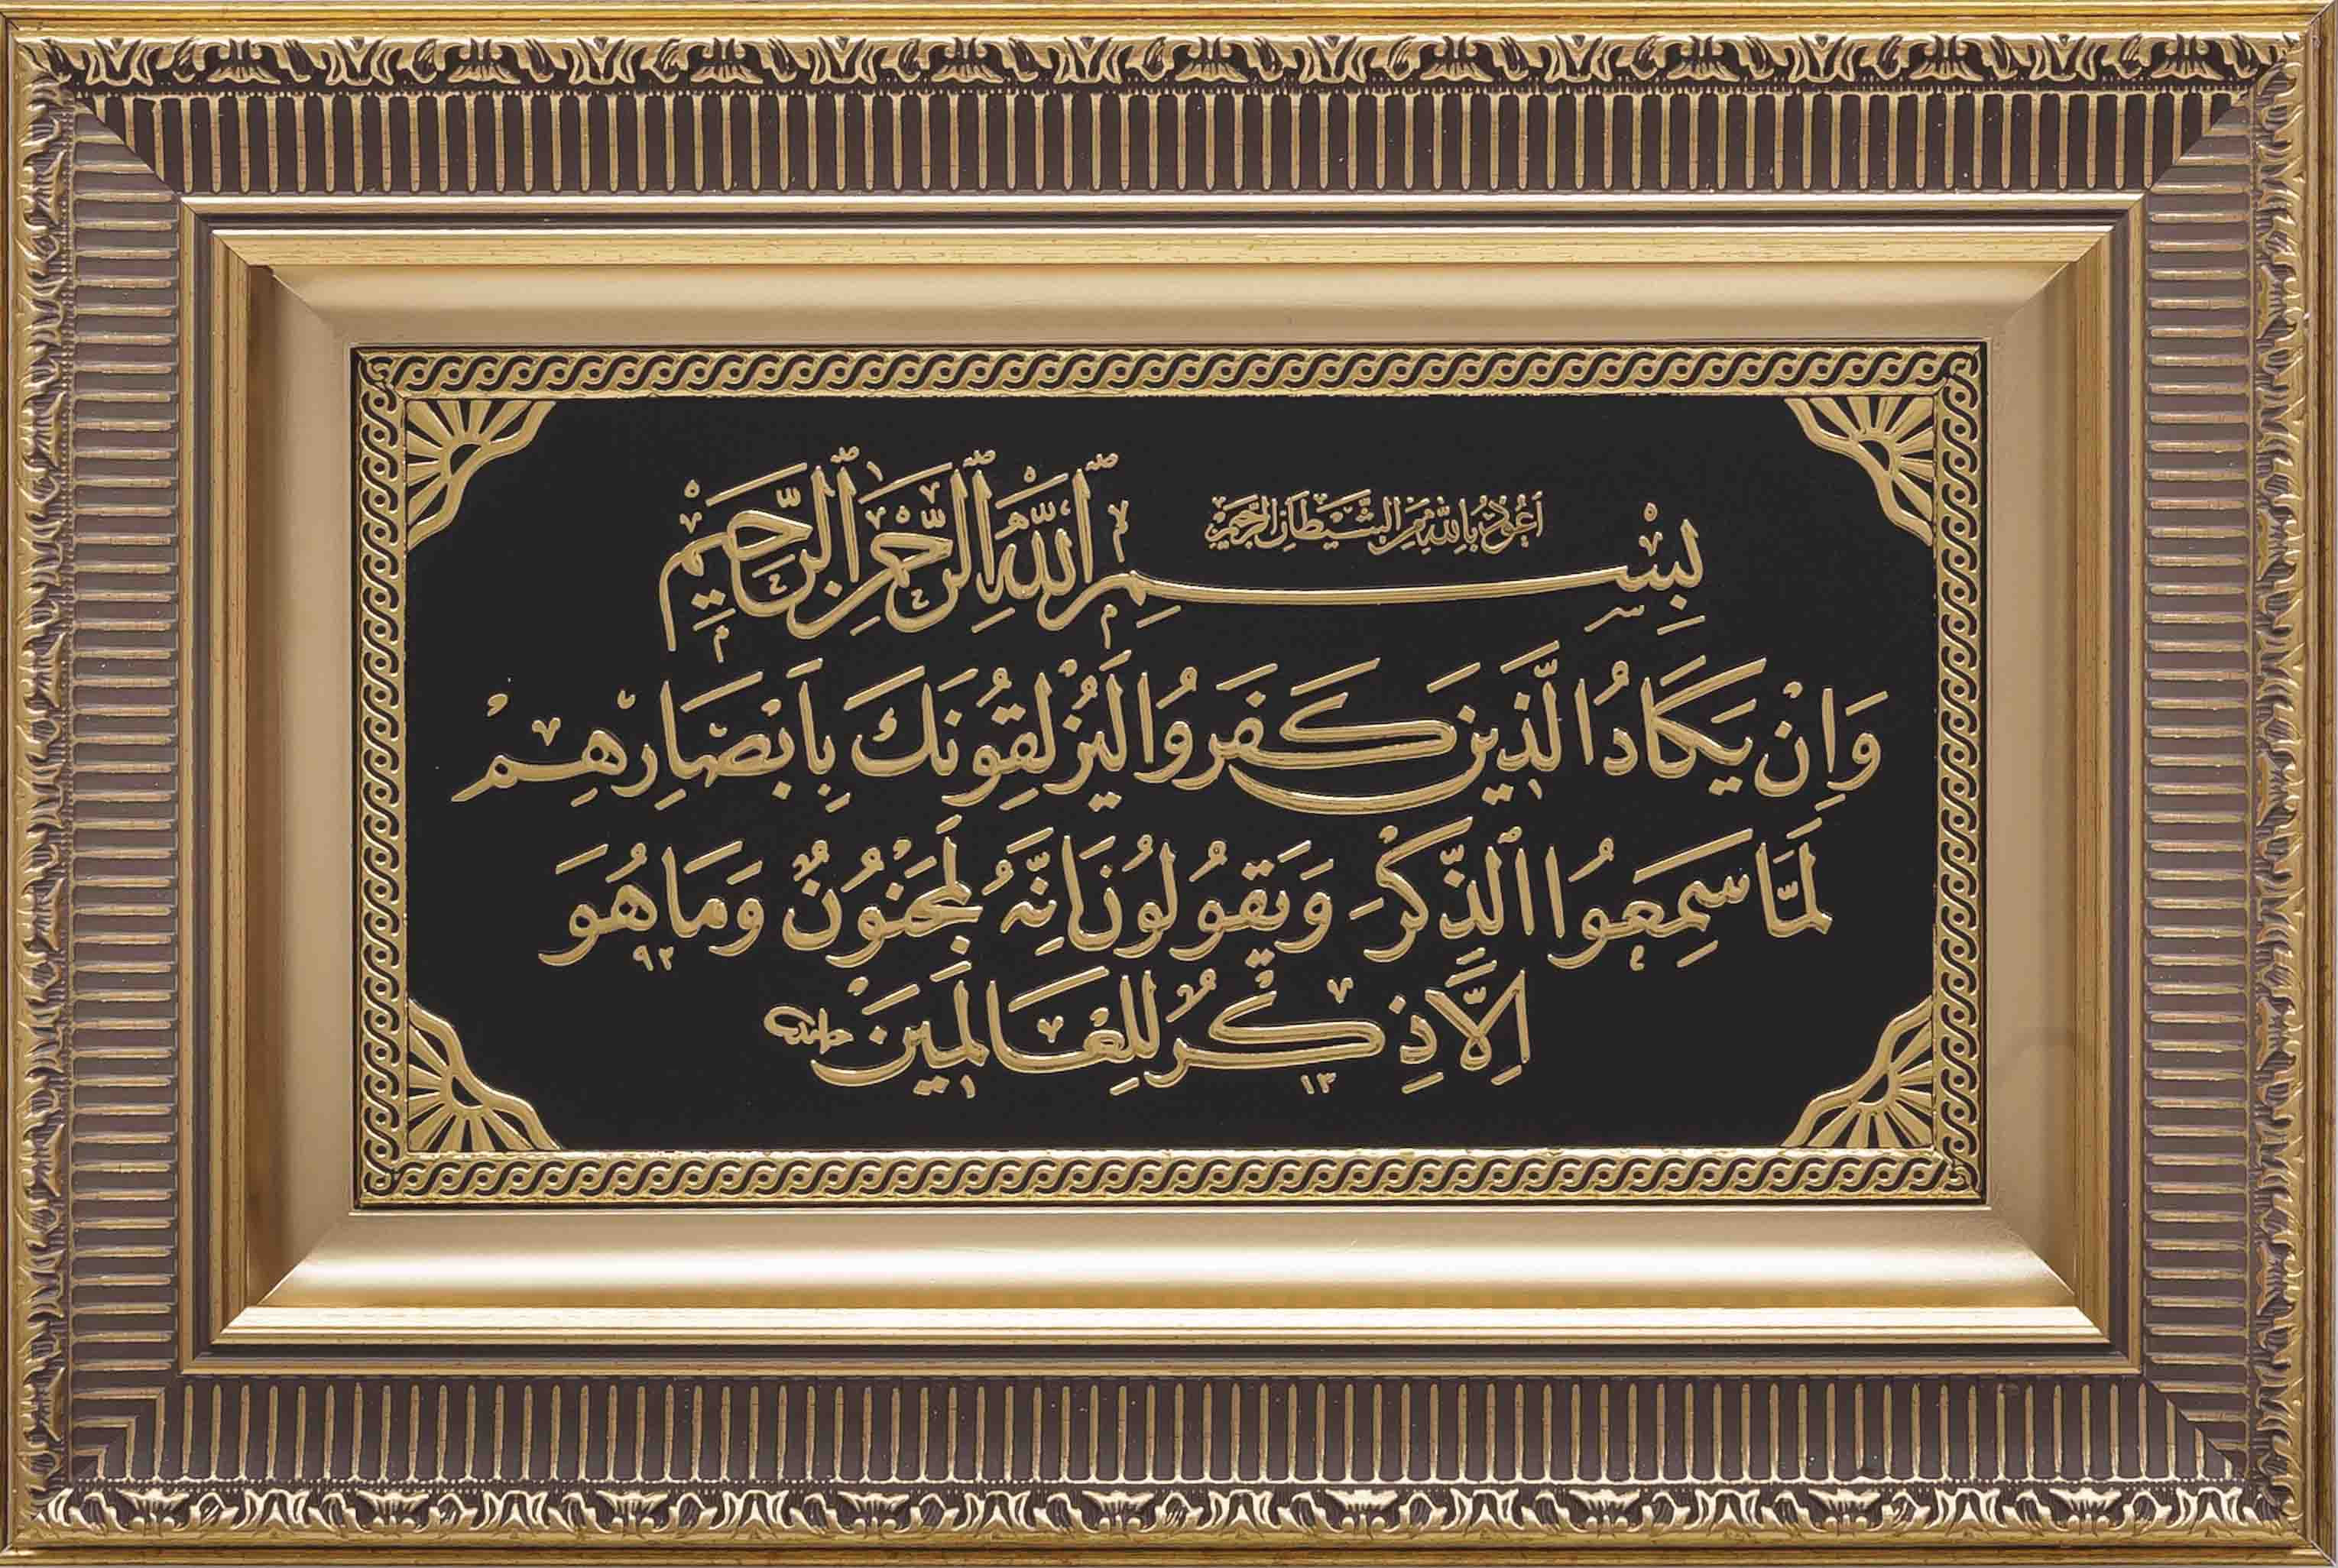 اَعُوذُ بِاللّٰهِ مِنَ الشَّيْطَانِ الرَّجِيمِ
بِسْمِ اللّٰهِ الرَّحْمٰنِ الرَّحِيمِ
وَاِنْ يَكَادُ الَّذِينَ كَفَرُوا لَيُزْلِقُونَكَ بِاَبْصَارِهِمْ
لَمَّا سَمِعُوا الذِّكْرَ وَيَقُولُونَ اِنَّهُ لَمَجْنُونٌ وَمَا هُوَ
اِلَّا ذِكْرٌ لِلْعَالَمِينَ